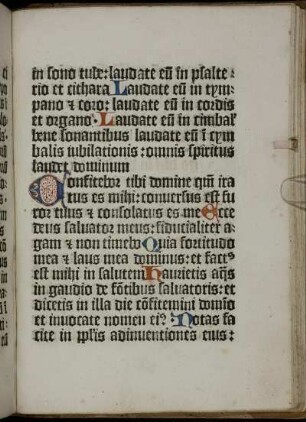 in sono tube: laudate eū in psalte⸗
rio et cithara Laudate eū in tym⸗
pano & coro: laudate eū in cordis
et organo · Laudate eū in cimbal'
bene sonantibus laudate eū ī cym
balis iubilationis: omnis spiritus
laudet dominum
Confitebor tibi domine qm̄ ira
tus es mihi: conuersus est fu
ror tuus & consolatus es me Ecce
deus saluator meus: fiducialiter a⸗
gam & non timebo Quia fortitudo
mea & laus mea dominus: et fact'
est mihi in salutem Haurietis aq̄s
in gaudio de fōtibus saluatoris: et
dicetis in illa die cōfitemini domīo
et inuocate nomen ei': Notas fa
cite in pplīs adinuentiones eius: